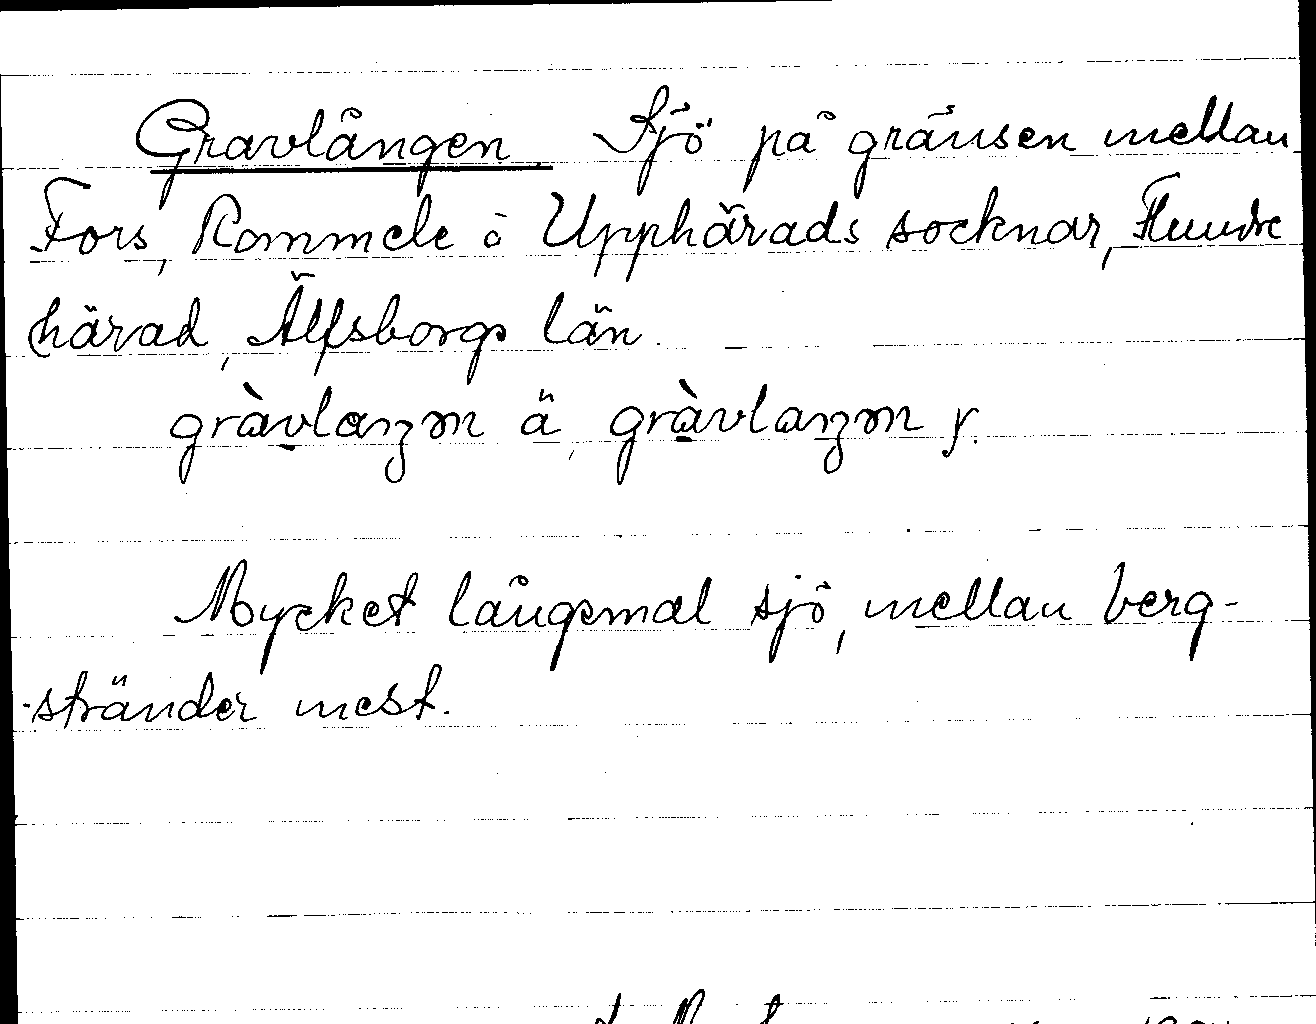 Gravlången. Sjö på gränsen mellan
Fors, Rommele o Upphärads socknar, Flundre
härad, Älfsborgs län.
gràvlaŋən ä, gràvlaŋən y.
Mycket långsmal sjö, mellan berg-
stränder mest.